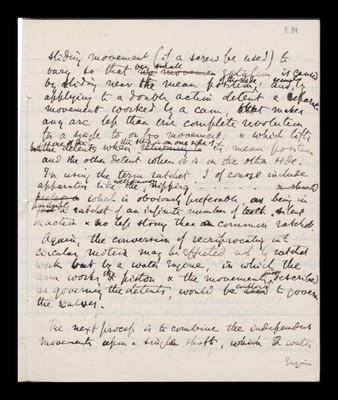 E 14
sliding movement (if a screw be used) to
vary so that very small rotation is caused
by sliding near the mean position, and by
applying to a double action detent a separate
movement worked by a cam that makes
any arc less than one complete revolution
for a single to or fro movement, & which lifts
one of the detents when the slide is on one side of its mean position
and the other detent when it is on the other side.
In using the term ratchet I of course include
apparatus like the nipping
which is obviously preferable, as being in
principle a ratchet of an infinite number of teeth, silent
in action & no less strong than a common ratchet.
Again, the conversion of reciprocating into
circular motion may be effected not by ratchet
work but by a water Engine, in which the
arm works the piston & the movement described
as governing the detents, would be to govern
the valves.
The next process is to combine the independent
movements upon a single shaft, which a water
Engine